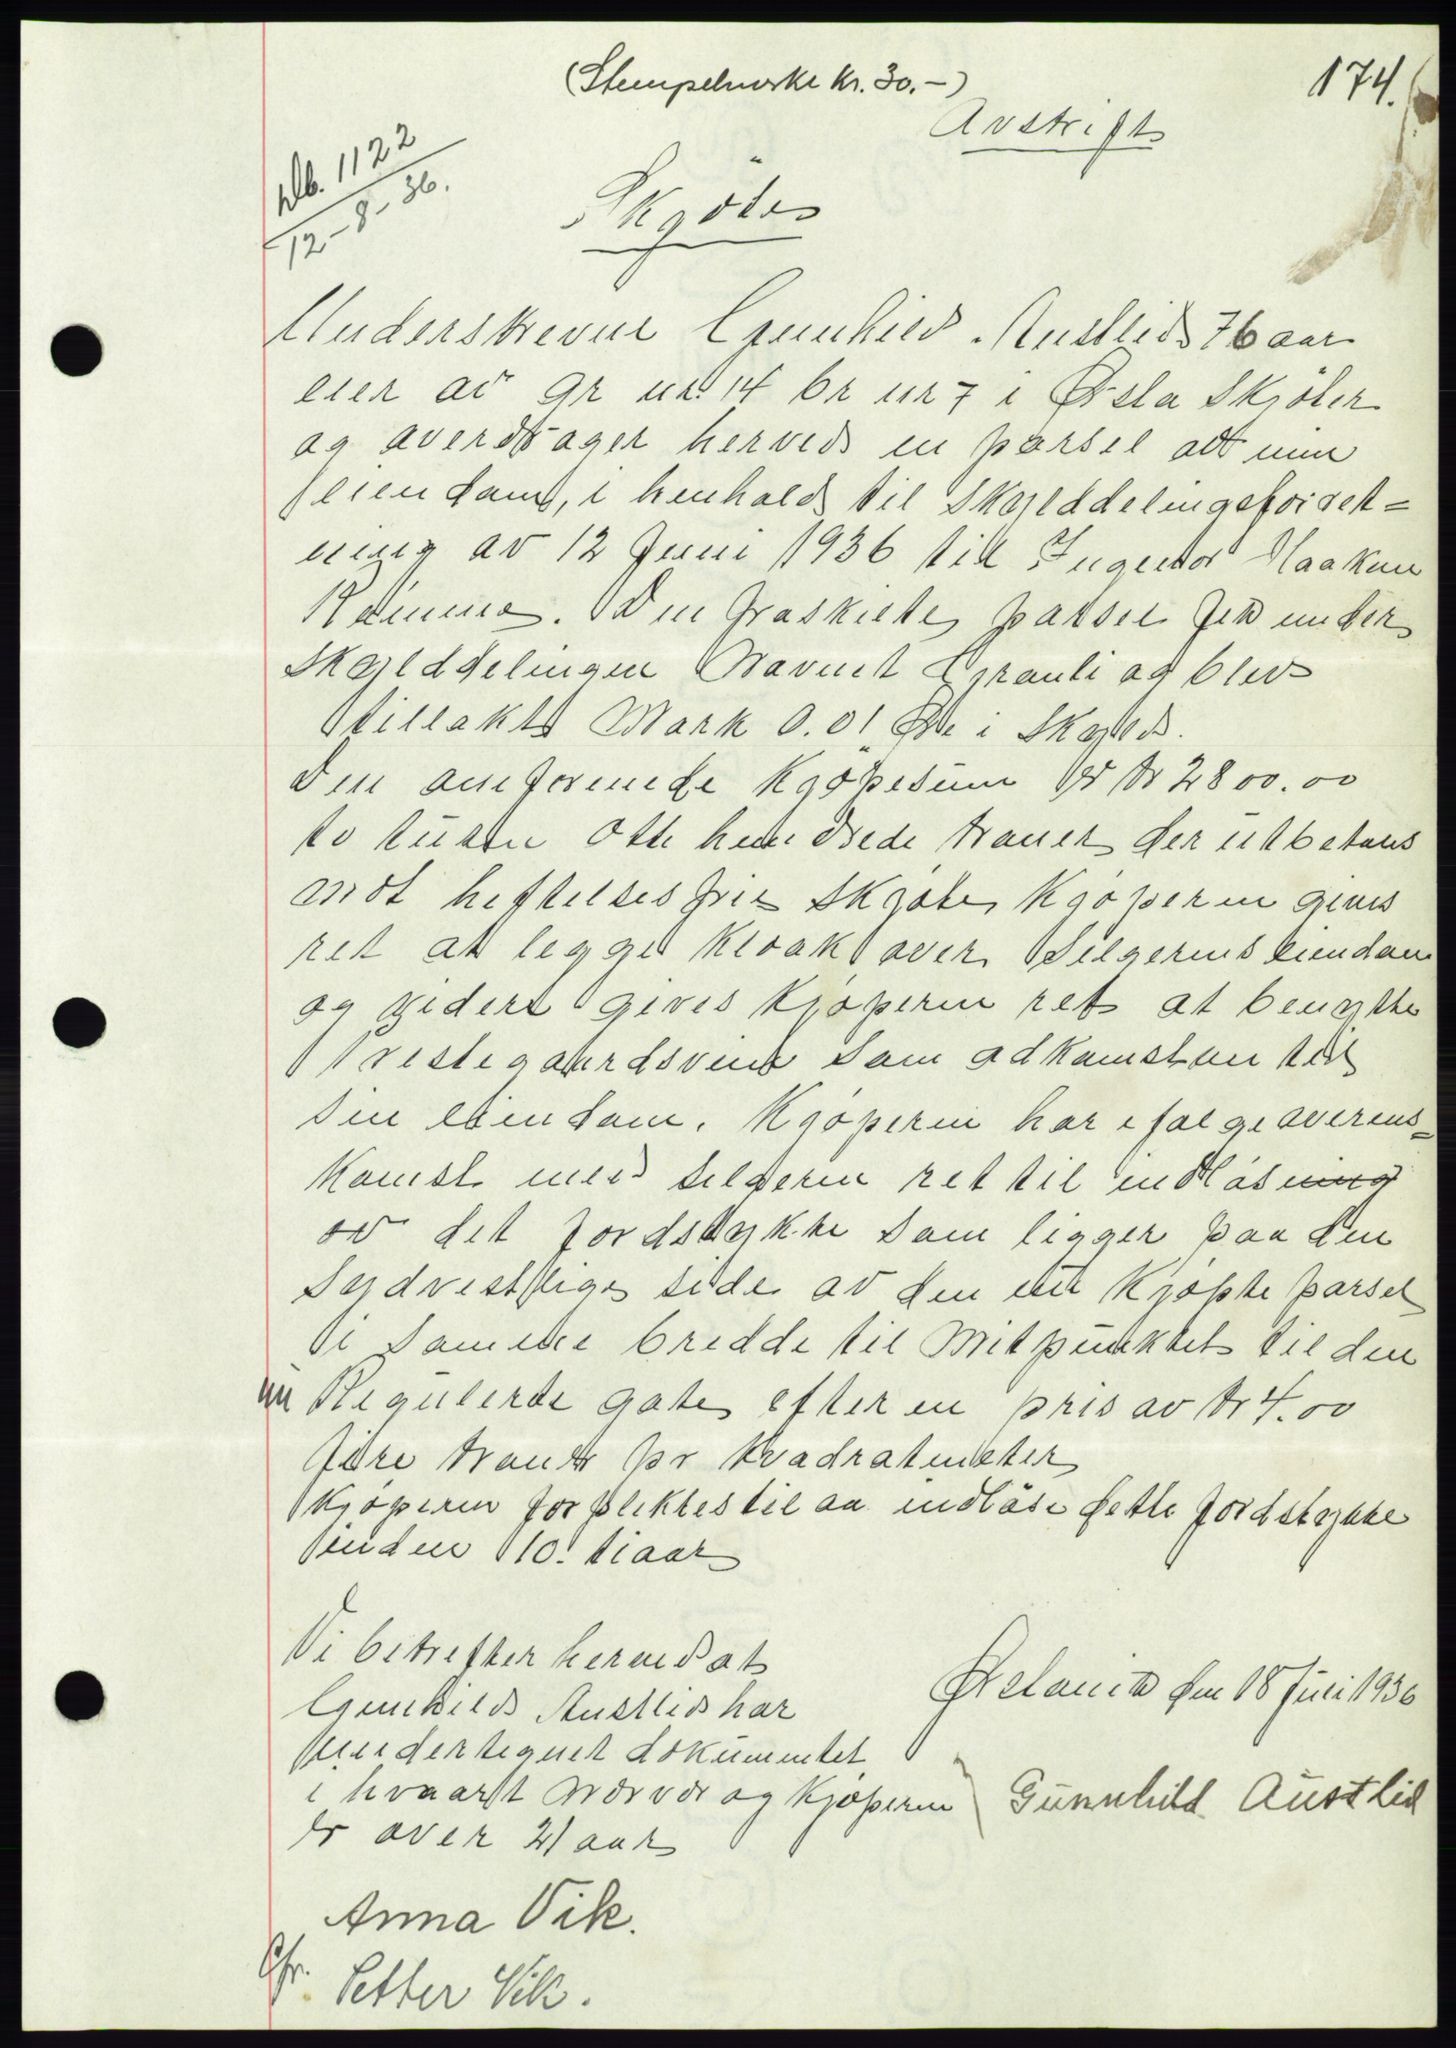 (Stempelmerke kr. 30.-)
174.
Avskrift
Db. 1122
12-8-36.
Skjöte
Underskrevne Gunhild Austlid 76 aar
eier av gr nr. 14 br nr 7 i Ørsta Skjöter
og averdrager herved en parsel av min
eiendom, i henhold til Skylddelingsforret=
ning av 12 Juni 1936 til Ingeniör Haakon
Den fraskilte parsel fek under
Skylddelingen Navnet Granli og blev
tillakt Mark 0.01 Øre i Skyld.
Den omforenede Kjöpesum er kr 2800.00
to tusen otte hundrede kroner der utbetales
mot heftelsesfrie Skjöte Kjöperen gives
ret at legge Kloak over Selgerens eiendom
og videre gives Kjöperen ret at benytte
Prestegaardsveien som adkomsten til
sin eiendom. Kjöperen har ifölge overens=
komst med selgeren ret til indlösning
av det Jordstykke som ligger paa den
Sydvestlige side av den nu Kjöpte parsel
i samme bredde til Mitpunktet til den
nu Regulerte gate efter en pris av kr 4.00
fire kroner pr kvadratmeter
Kjöperen forpliktes til aa indlöse dette Jordstykke
inden 10. ti aar
Vi betrefter herved at
Gunhild Austlid har
undertegnet dokumentet
i hvaart Nærvær og Kjöperen
er over 21 aar
Ørstavik den 18 Juni 1936
Gunnhild Austlid
Anna Vik.
Chr. Petter Vik.